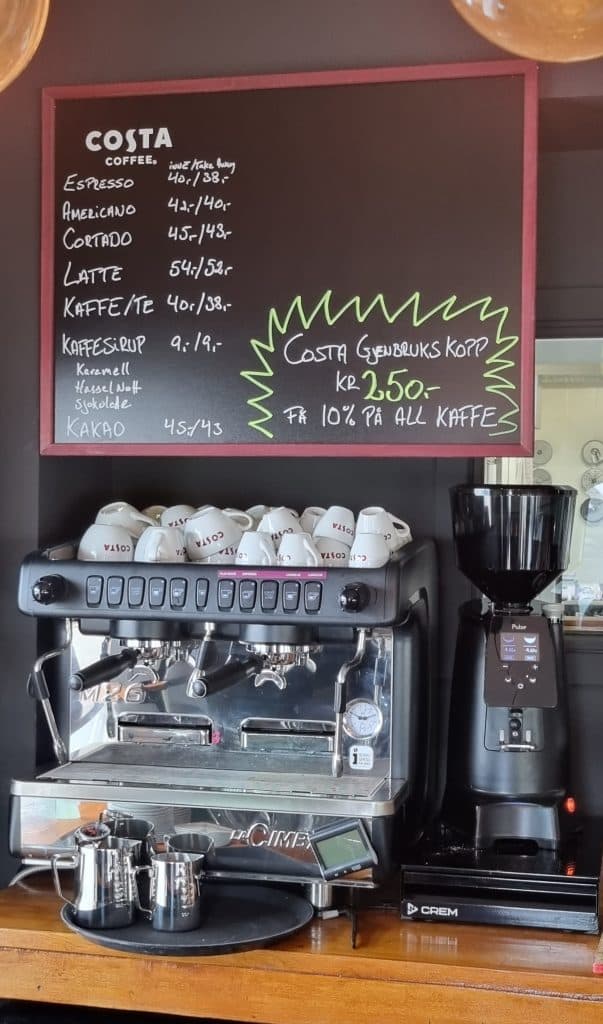 COSTA
COFFEE.
inne/Take Away
ESPRESSO 40,-/38,-
AMERICANO 42,-/40,-
CORTADO 45,-/43,-
LATTE 54,-/52,-
KAFFE/TE 40,-/38,-
KAFFESIRUP 9,-/9,-
Karamell
Hasselnøtt
Sjokolade
KAKAO 45,-/43
COSTA GJENBRUKS KOPP
KR 250,-
FÅ 10% PÅ ALL KAFFE
COSTA
COSTA
COSTA
COSTA
M26
LACIMBALI
Pulsar
CREM